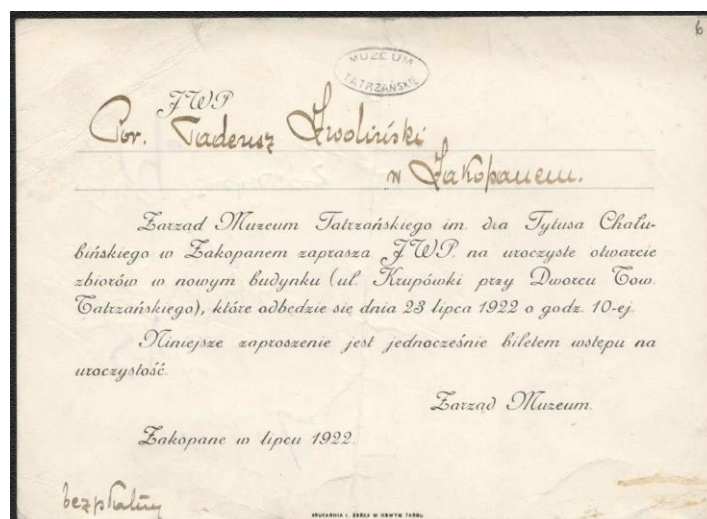 6
MUZEUM
TATRZAŃSKIE
JWP
Por. Tadeusz Zwoliński
w Zakopanem.
Zarząd Muzeum Tatrzańskiego im. dra Tytusa Chału-
bińskiego w Zakopanem zaprasza JWP. na uroczyste otwarcie
zbiorów w nowym budynku (ul. Krupówki przy Dworcu Tow.
Tatrzańskiego), które odbędzie się dnia 23 lipca 1922 o godz. 10-ej.
Niniejsze zaproszenie jest jednocześnie biletem wstępu na
uroczystość.
Zarząd Muzeum.
Zakopane w lipcu 1922.
bezpłatny
DRUKARNIA W NOWYM TARGU